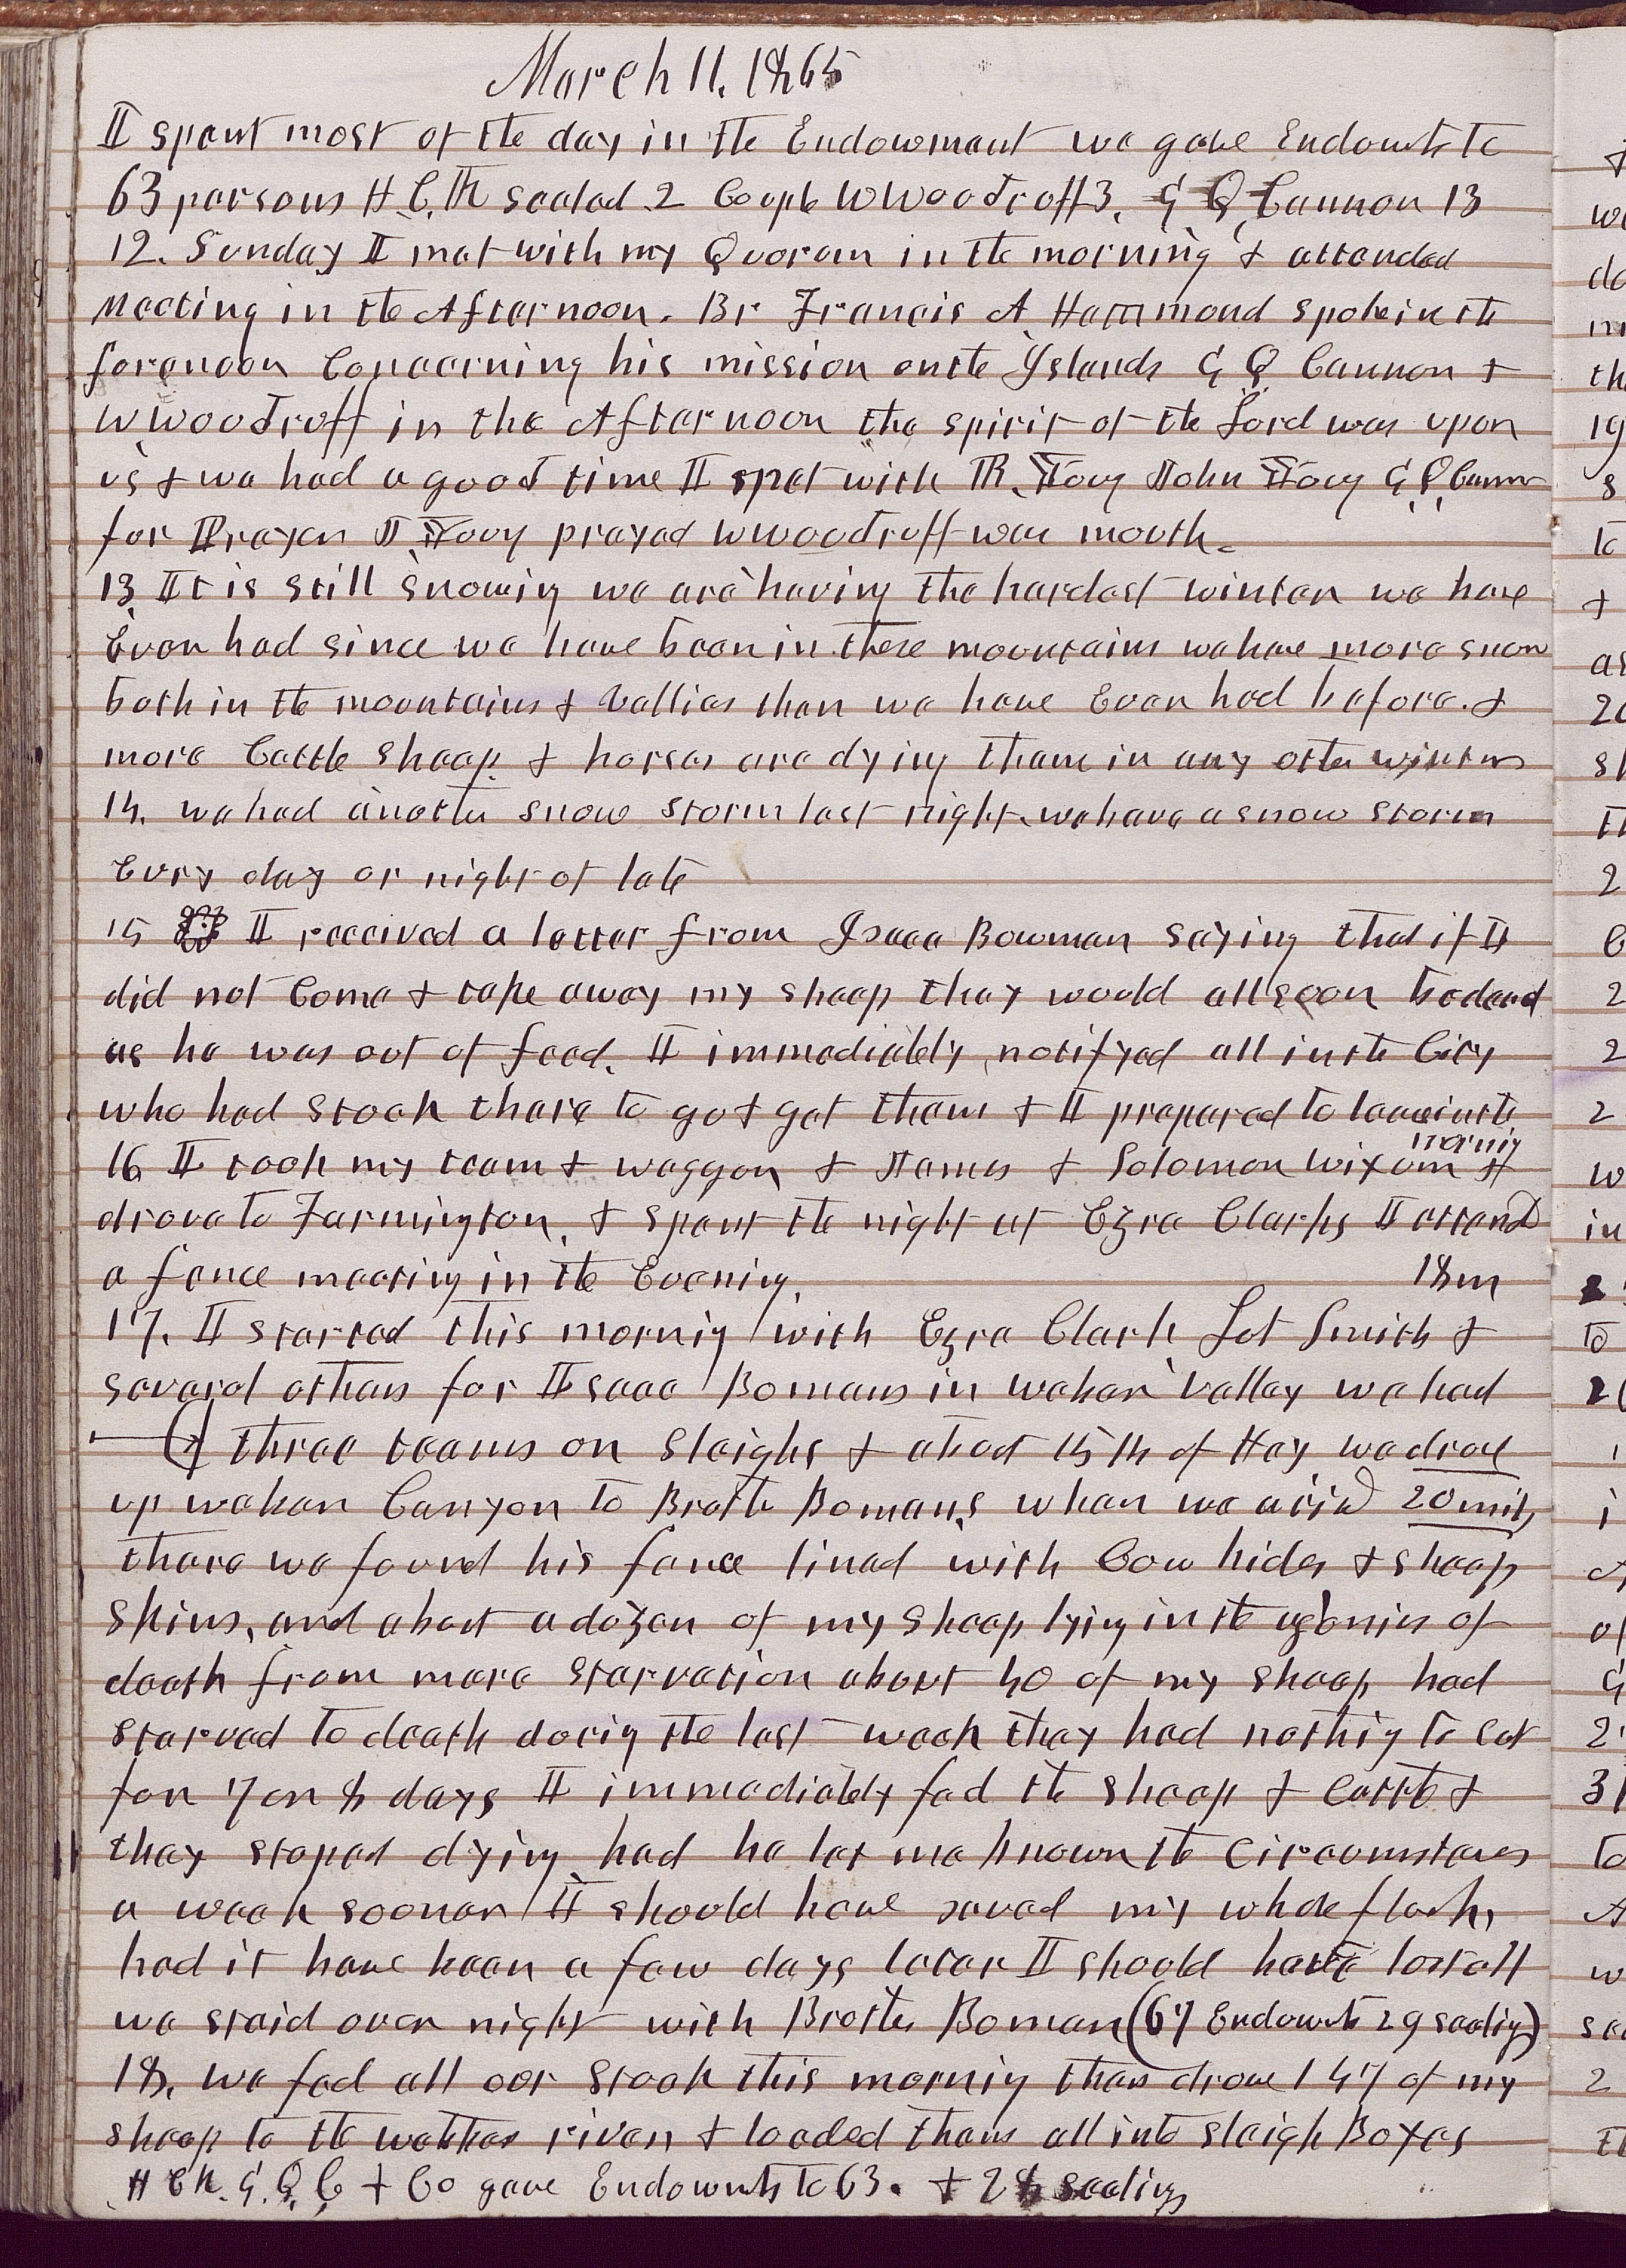 March 11, 1865
I spent most of the day in the Endowment we gave Endowmts to
63 persons H C. K sealed 2 Couple W Woodruff 3, G Q Cannon 13
12. Sunday I met with my Quorum in the morning & attended
Meeting in the Afternoon. Br Francis A Hammond spoke in the
forenoon Concerning his mission on the Islands G Q Cannon &
W Woodruff in the Afternoon the spirit of the Lord was upon
us & we had a good time I met with B. Young John Young G Q Cannon
for Prayer J Young prayed W Woodruff was mouth.
13 It is still snowing we are having the hardest winter we have
Ever had since we have been in these mountains we have more snow
both in the mountains & vallies than we have Ever had before. &
more Cattle sheep & horses are dying them in any other winters
14. we had another snow storm last night. we have a snow storm
Evry day or night of late
15 I received a letter from Isaac Bowman saying that if I
did not Come & take away my sheep they would all soon be dead
as he was out of feed. I immediately notifyed all in the City
who had stock there to go & get them & I prepared to leave in the
morning
16 I took my team & waggon & James & Solomon Wixom &
drove to Farmington, & spent the night at Ezra Clarks I attend
a fence meeting in the Evening. 18 m
17. I started this morning with Ezra Clark Lot Smith &
several others for Isaac Bomans in weber valley we had
three teams on sleighs & about 15 H of Hay we drove
up weber Canyon to Brothe Bomans, when we arivd 20 mils,
there we found his fence lined with Cow hides & sheep
skins, and about a dozen of my sheep lying in the agonies of
death from mere starvation about 40 of my sheep had
starved to death durig the last week they had nothig to eat
for 7 or 8 days I immediately fed the sheep & Cattle &
they stoped dying had he let me known the Circumstances
a week sooner I should have saved my whole flock,
had it have been a few days later I should have lost all
we staid over night with Brother Boman (67 Endowmts 29 sealigs)
18, we fed all our stock this mornig then drove 147 of my
sheep to the webber river & loaded them all into sleigh Boxes
H C K. G. Q. C & Co gave Endowmts to 63. & 28 sealigs